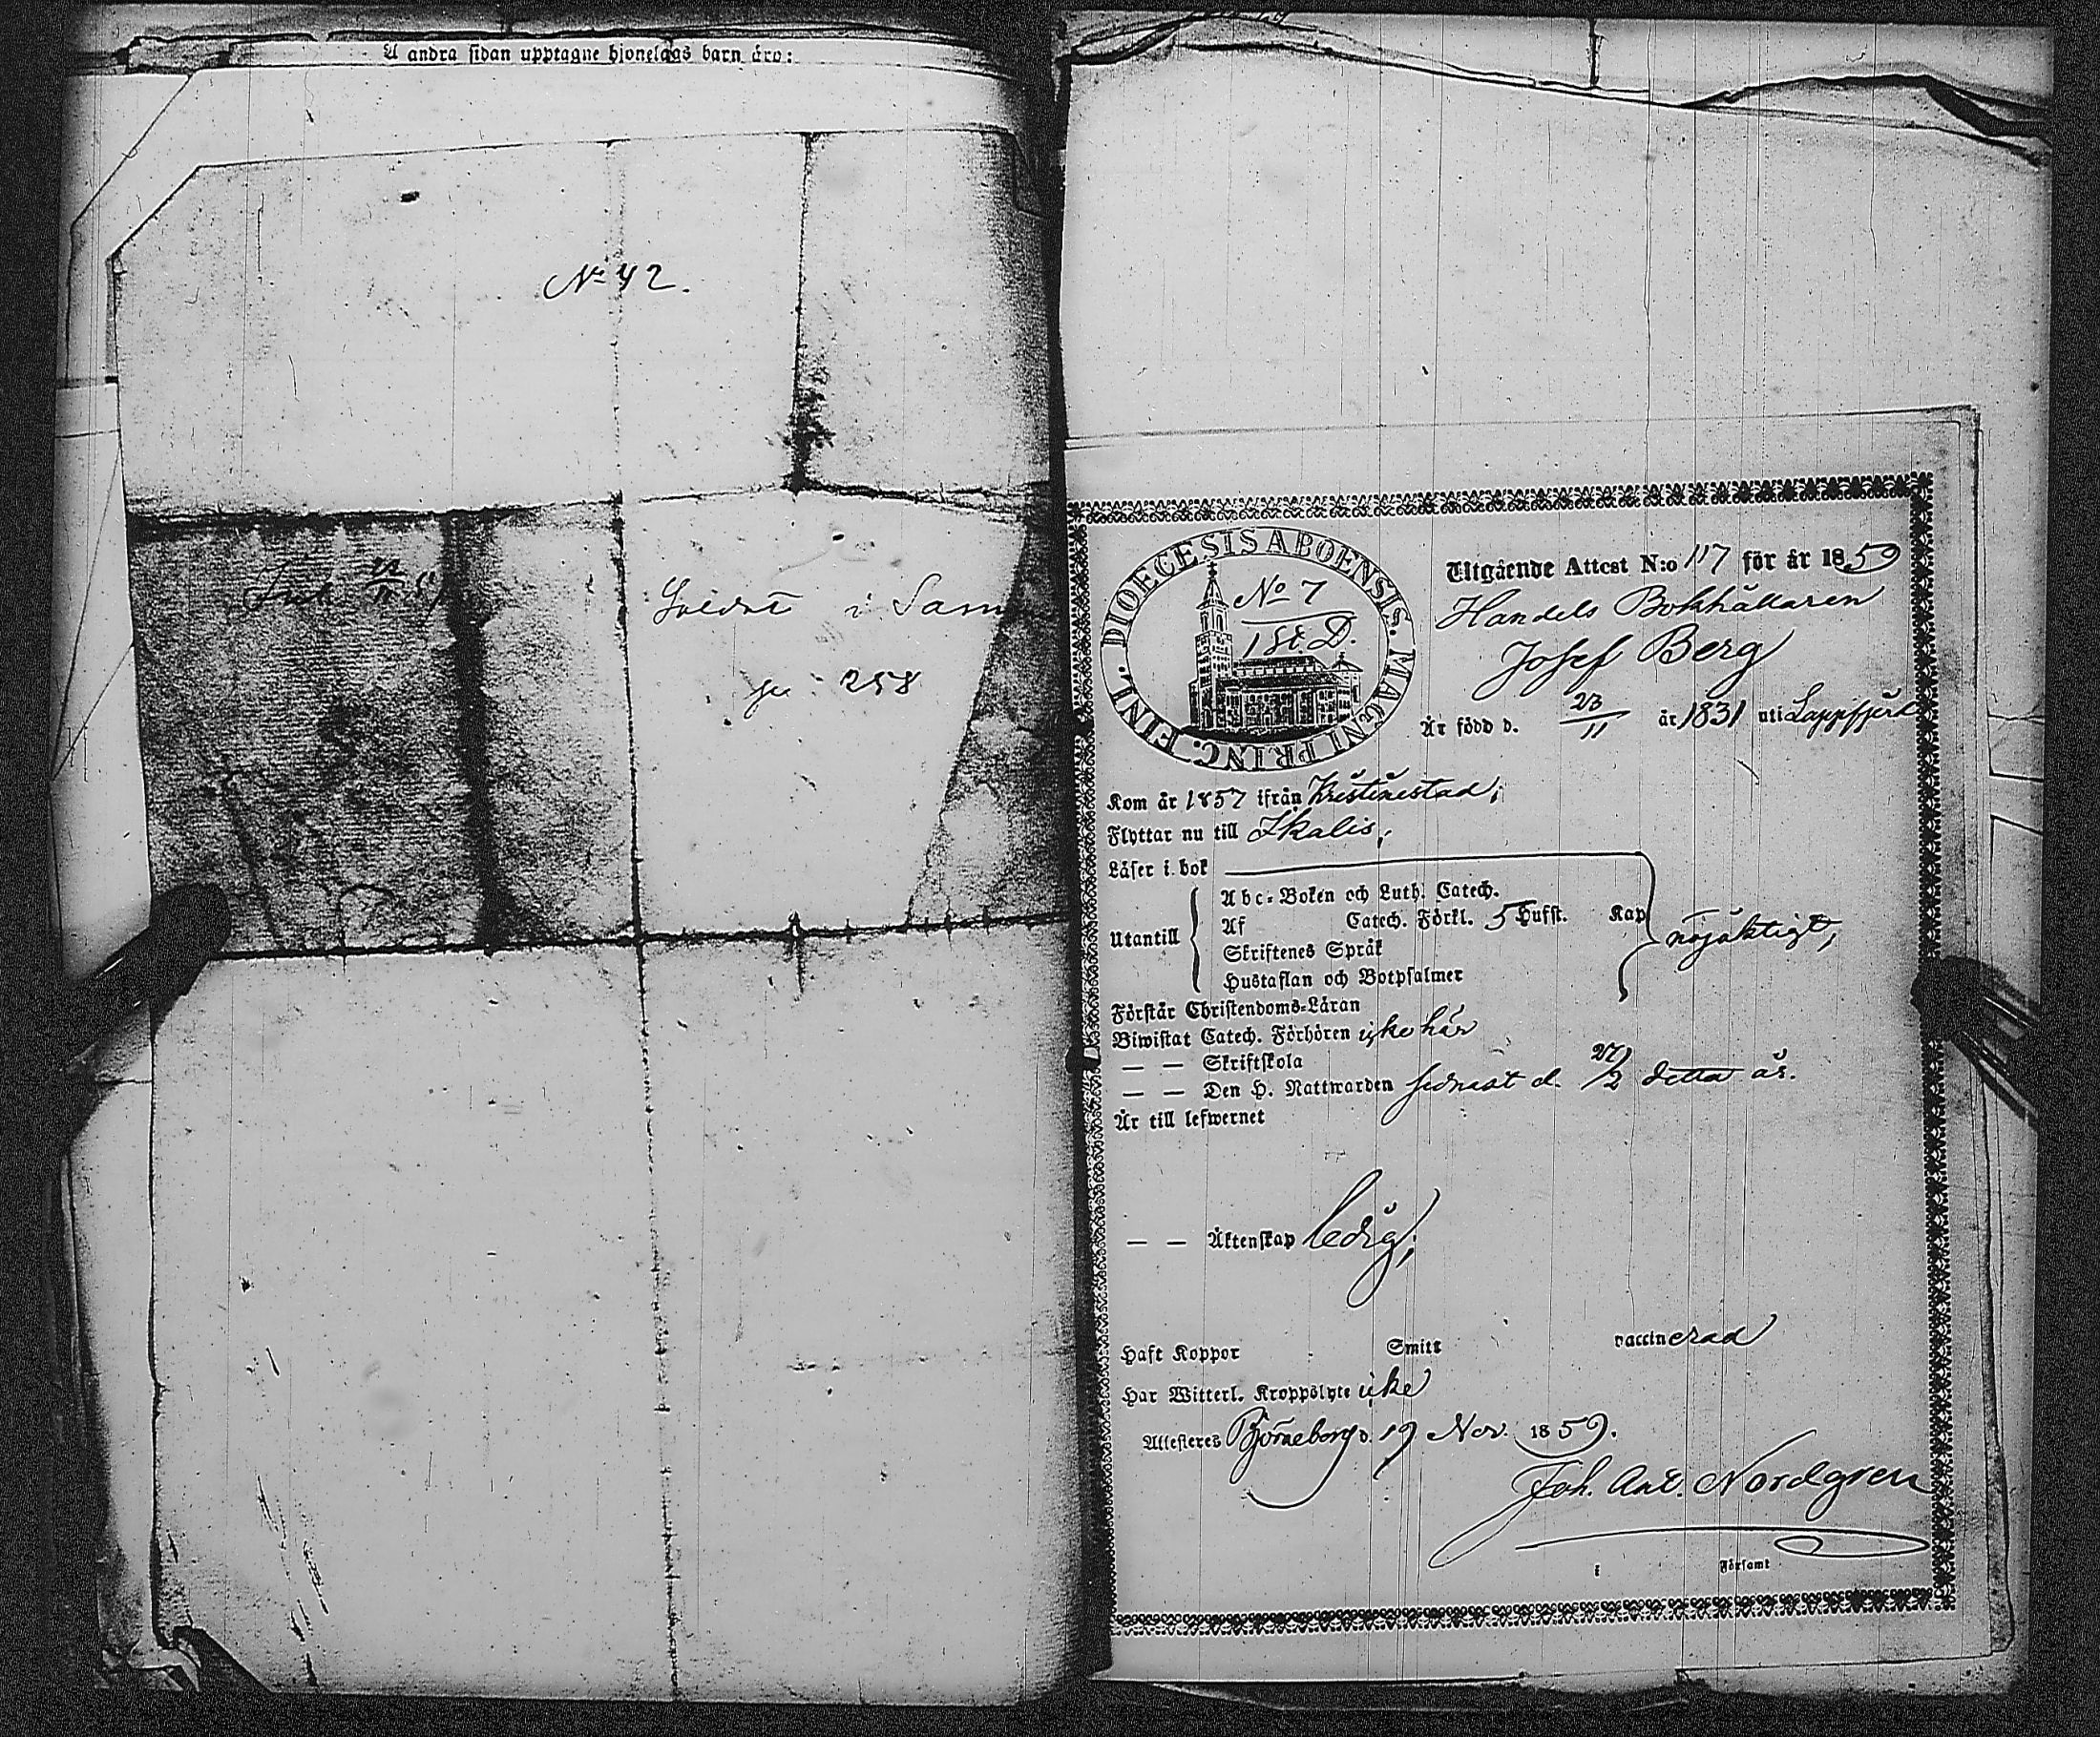 A andra sidan upptagne hjonelags barn äro:
No 42.
Ink 22/11 59
i Sam
258
DIOECESIS ABOENSIS. MAGNI PRINC. FINL.
No 7
1 St. D.
Utgående Attest N:o 117 för år 1859
Handels Bokhållaren
Josef Berg
Är född d. 23/11 år 1831 uti Lappfjerd
Kom år 1857 ifrån Kristinestad,
Flyttar nu till Ikalis,
Läser i bok
Utantill
Abc-Boken och Luth. Catech.
Af Catech. Förkl. 5 Hufst. Kap
Skriftenes Språk
Hustaflan och Botpsalmer
nöjaktigt,
Förstår Christendoms-Läran
Biwistat Catech. Förhören icke här
— — Skriftskola
— — Den H. Nattwarden sednast d. 27/2 detta år.
Är till lefwernet
— — Äktenskap ledig,
Haft Koppor Smitt vaccinerad
Har Witterl. Kroppslyte icke
Attesteres Björneborg d. 19 Nov. 1859.
Joh. Ant. Nordgren
i Församt